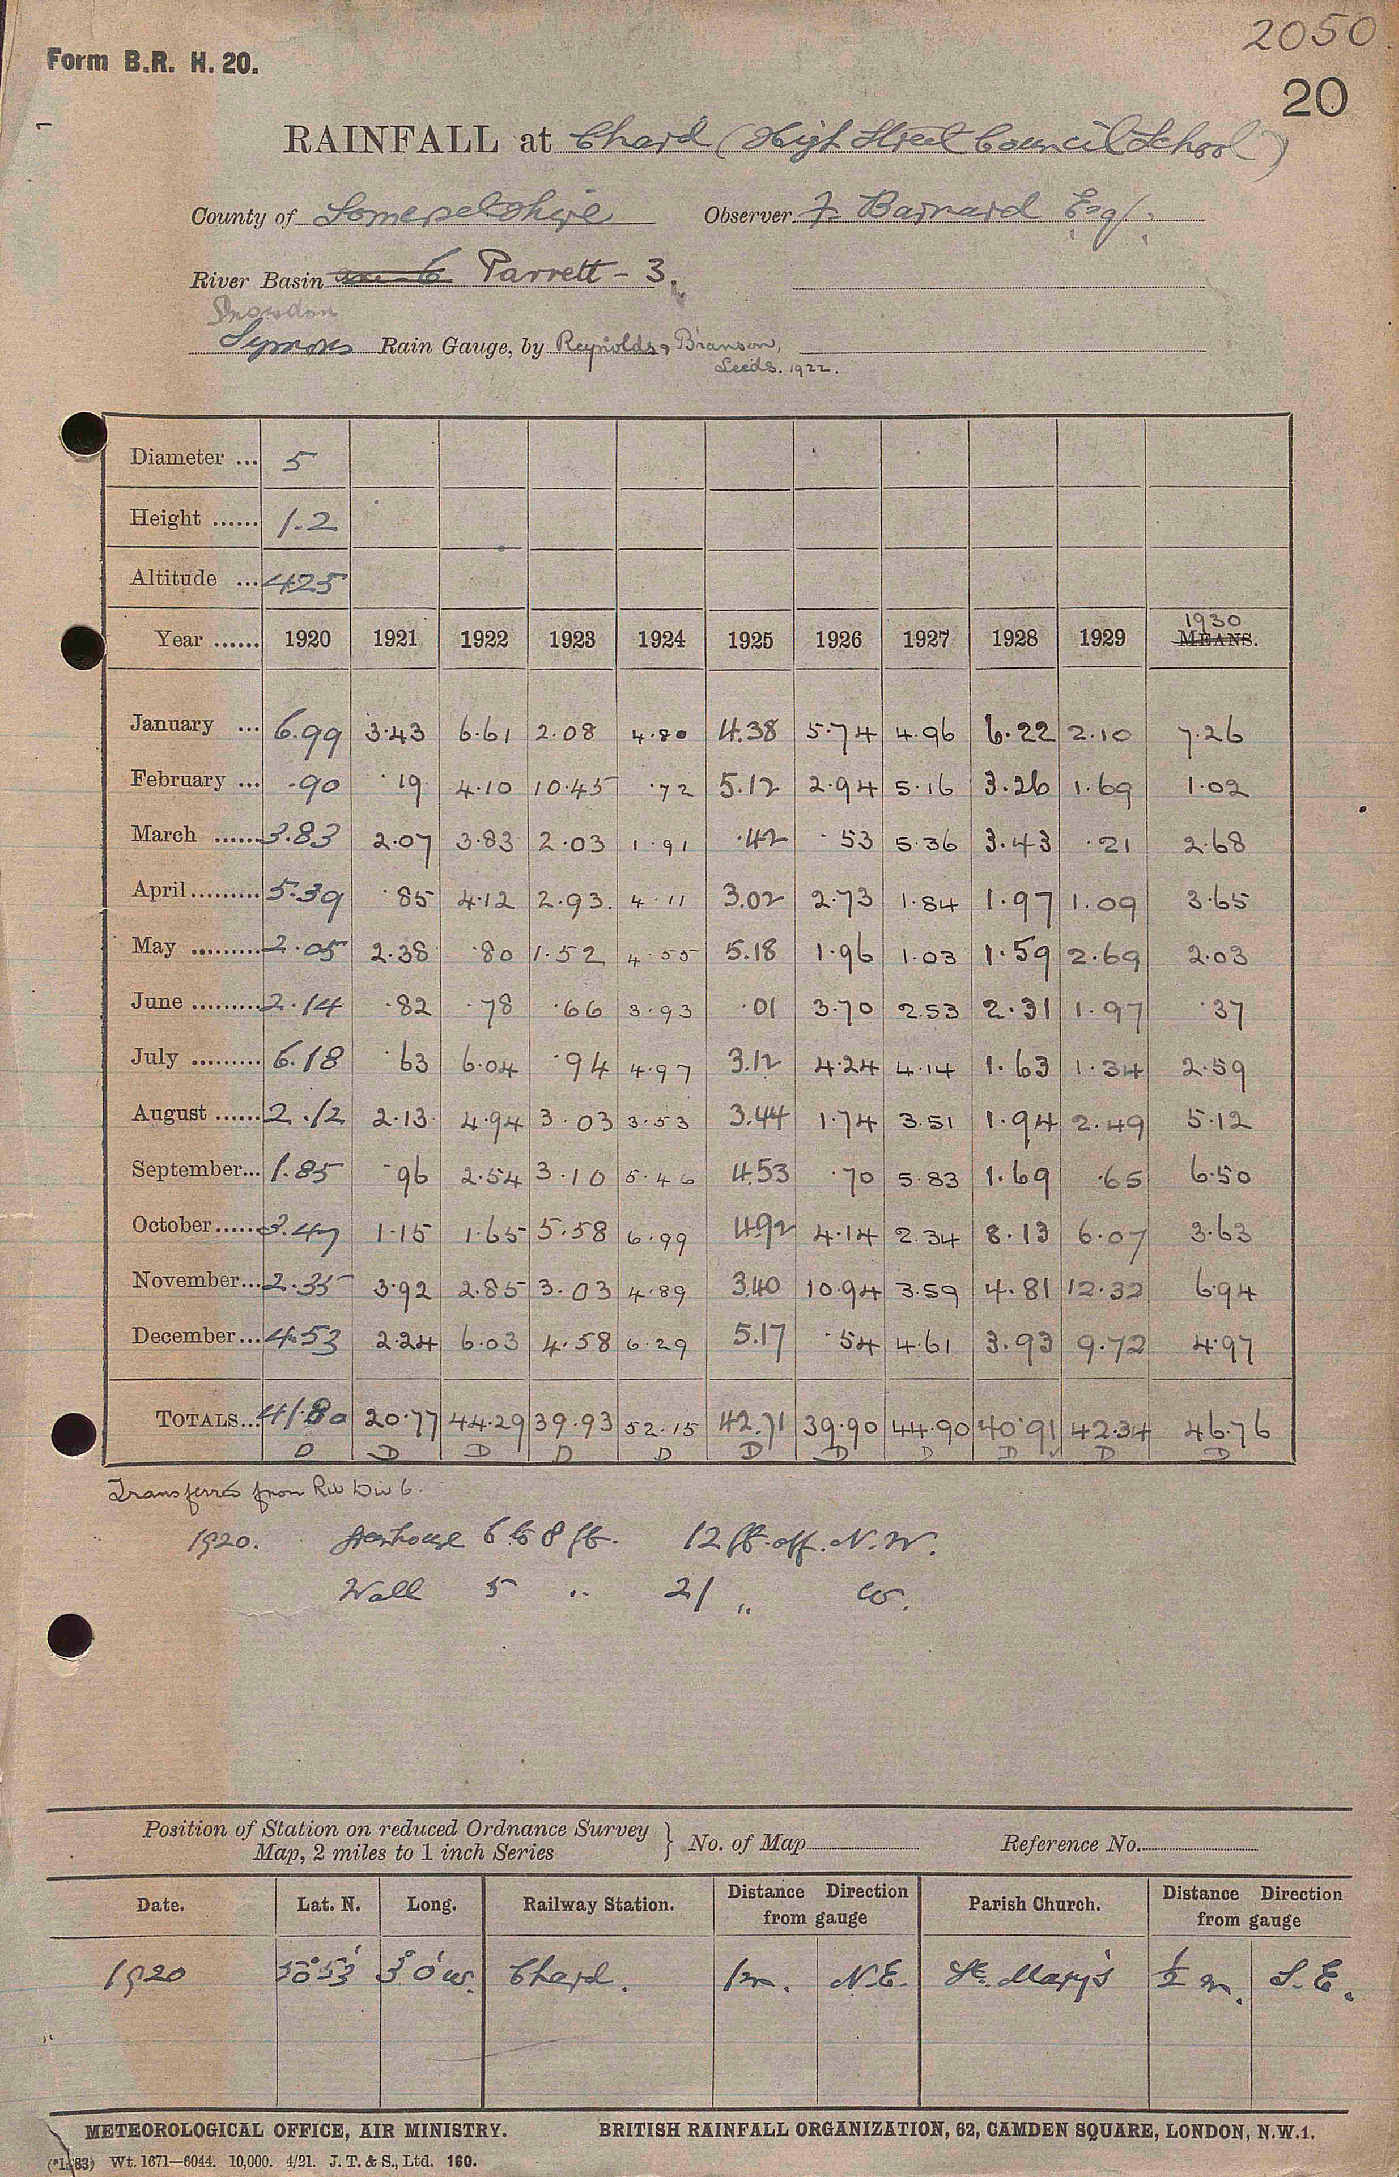 2050
Form B.R. H. 20.
20
RAINFALL at Chard (High Street Council School)
County of Somersetshire Observer F. Barnard Esq.
River Basin Parrett - 3.
Snowdon
Symons Rain Gauge, by Reynolds & Branson,
Leeds. 1922.
Diameter ... 5
Height ...... 1.2
Altitude ... 425
1930
Year ...... 1920 1921 1922 1923 1924 1925 1926 1927 1928 1929 MEANS.
January ... 6.99 3.43 6.61 2.08 4.80 4.38 5.74 4.96 6.22 2.10 7.26
February ... .90 .19 4.10 10.45 .72 5.12 2.94 5.16 3.26 1.69 1.02
March ...... 3.83 2.07 3.83 2.03 1.91 .42 .53 5.36 3.43 .21 2.68
April ......... 5.39 .85 4.12 2.93 4.11 3.02 2.73 1.84 1.97 1.09 3.65
May ......... 2.05 2.38 .80 1.52 4.55 5.18 1.96 1.03 1.59 2.69 2.03
June ......... 2.14 .82 .78 .66 3.93 .01 3.70 2.53 2.31 1.97 .37
July ......... 6.18 .63 6.04 .94 4.97 3.12 4.24 4.14 1.63 1.34 2.59
August ...... 2.12 2.13 4.94 3.03 3.53 3.44 1.74 3.51 1.94 2.49 5.12
September... 1.85 .96 2.54 3.10 5.46 4.53 .70 5.83 1.69 .65 6.50
October ...... 3.47 1.15 1.65 5.58 6.99 4.92 4.14 2.34 8.13 6.07 3.63
November... 2.35 3.92 2.85 3.03 4.89 3.40 10.94 3.59 4.81 12.32 6.94
December... 4.53 2.24 6.03 4.58 6.29 5.17 .54 4.61 3.93 9.72 4.97
TOTALS... 41.80 20.77 44.29 39.93 52.15 42.71 39.90 44.90 40.91 42.34 46.76
D D D D D D D D D D D
Transferred from Riv Div 6.
1920. Henhouse 6 to 8 ft. 12 ft. off. N.W.
Wall 5 " 21 " W.
Position of Station on reduced Ordnance Survey
Map, 2 miles to 1 inch Series } No. of Map Reference No.
Date. Lat. N. Long. Railway Station. Distance Direction from gauge Parish Church. Distance Direction from gauge
1920 50° 53' 3° 0' W. Chard. 1 m. N.E. St. Mary's ½ m. S.E.
METEOROLOGICAL OFFICE, AIR MINISTRY. BRITISH RAINFALL ORGANIZATION, 62, CAMDEN SQUARE, LONDON, N.W.1.
Wt. 1671—6044. 10,000. 4/21. J. T. & S., Ltd. 160.